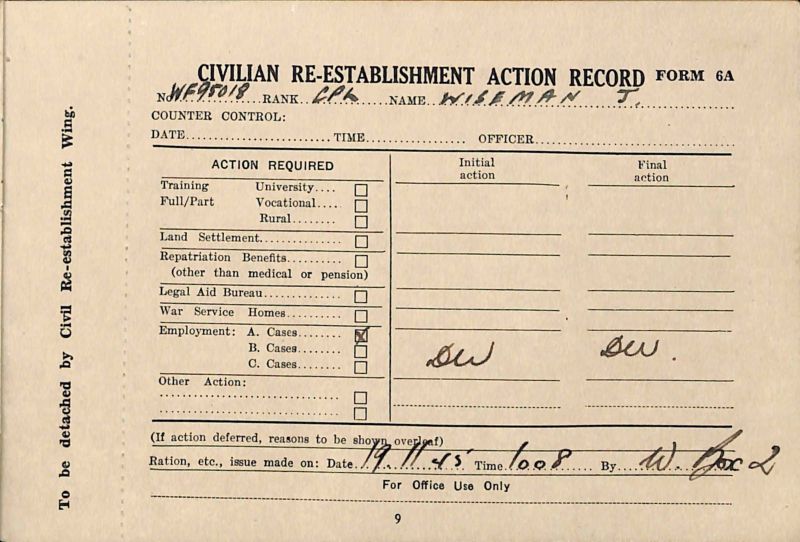 CIVILIAN RE-ESTABLISHMENT ACTION RECORD FORM 6A
No. WF95018 RANK CPL NAME WISEMAN J.
COUNTER CONTROL:
DATE TIME OFFICER
ACTION REQUIRED Initial action Final action
Training University
Full/Part Vocational
Rural
Land Settlement
Repatriation Benefits
(other than medical or pension)
Legal Aid Bureau
War Service Homes
Employment: A. Cases
B. Cases DW DW.
C. Cases
Other Action:
(If action deferred, reasons to be shown overleaf)
Ration, etc., issue made on: Date 19.11.45 Time 1008 By W.
For Office Use Only
9
To be detached by Civil Re-establishment Wing.